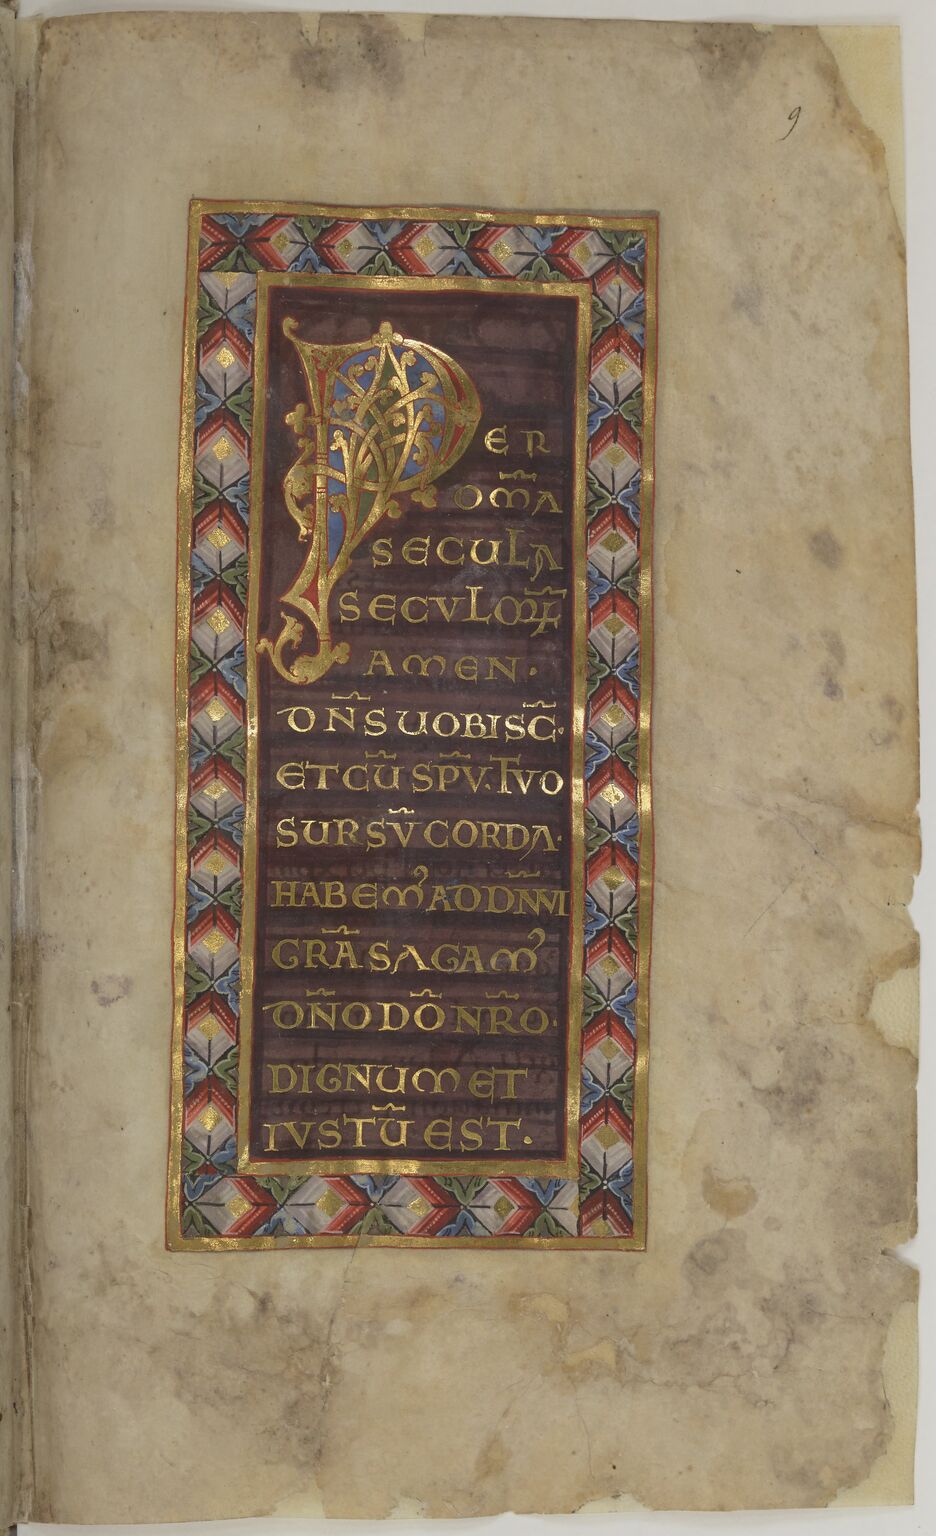 9
PER
OM̅A
SECULA
SECVLORꝜ
AMEN·
DN̅S UOBISC̅·
ET CU̅ SPV̅· TVO
SURSV̅ CORDA·
HABEMꝰ AD DN̅VM
GRA̅S AGAMꝰ
DN̅O DO̅ NR̅O·
DIGNUM ET
IVSTU̅ EST·